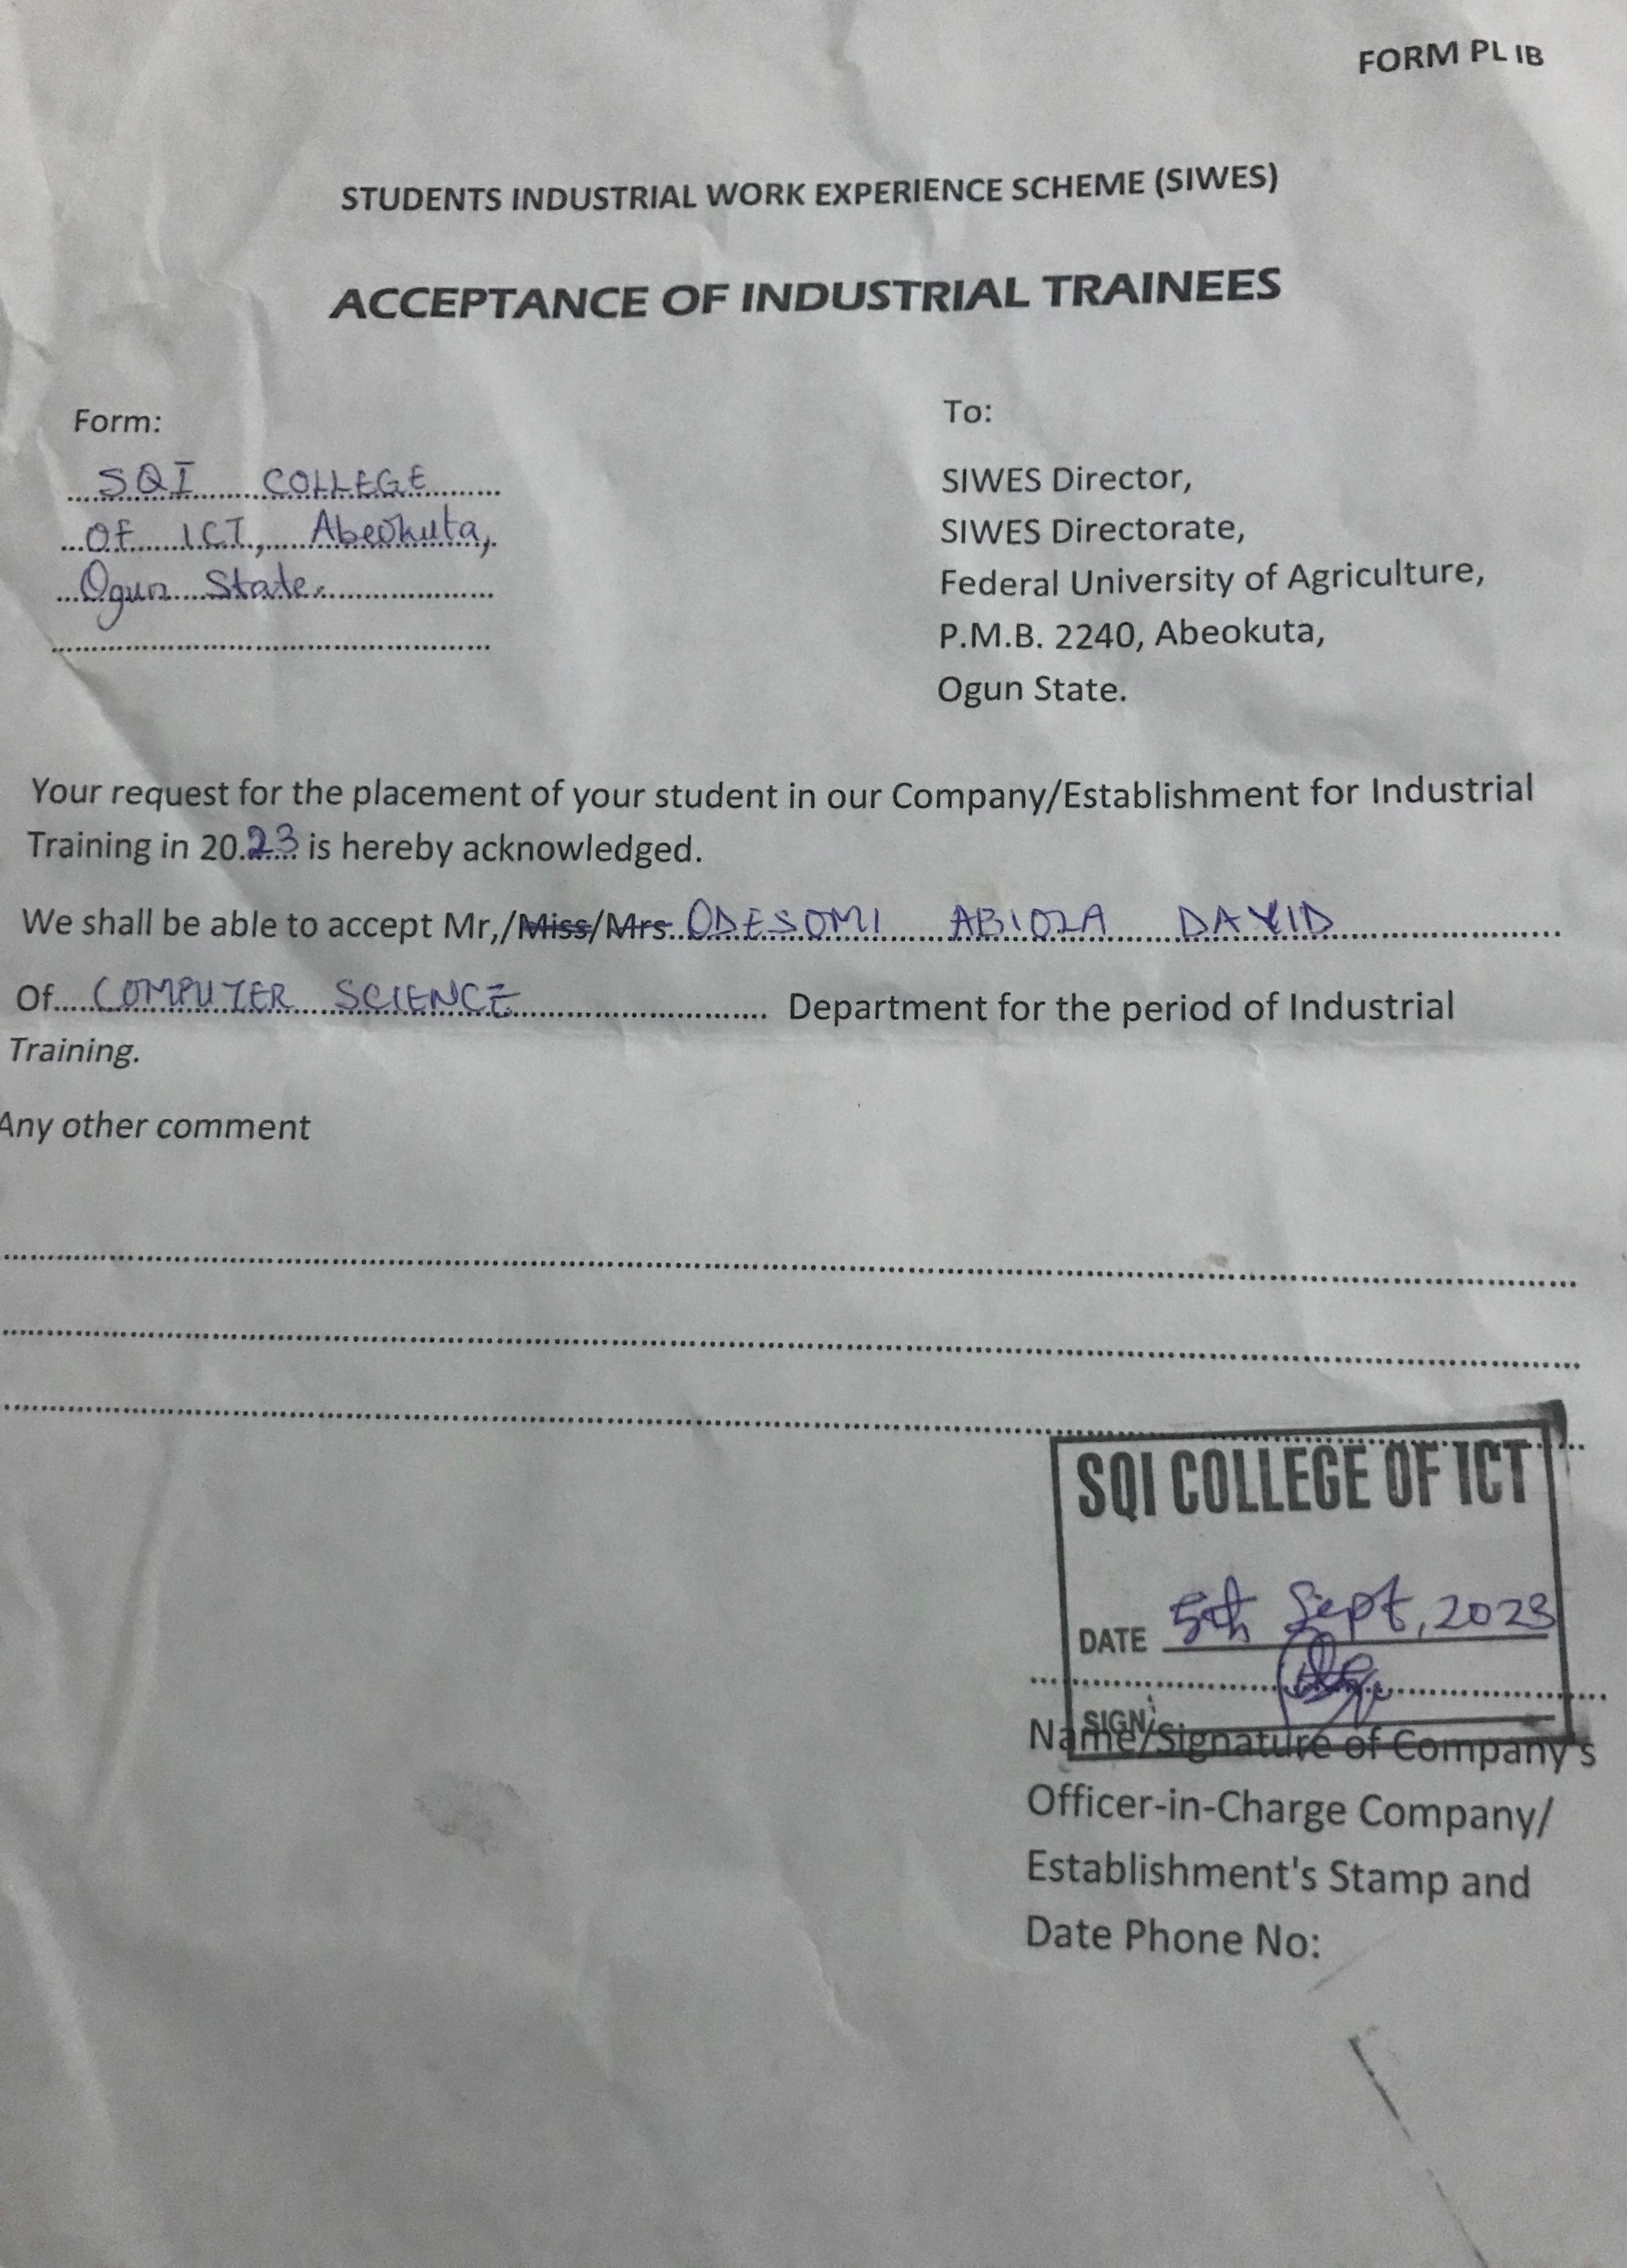 FORM PL IB
STUDENTS INDUSTRIAL WORK EXPERIENCE SCHEME (SIWES)
ACCEPTANCE OF INDUSTRIAL TRAINEES
Form:
SQI COLLEGE
OF ICT, Abeokuta,
Ogun State.
To:
SIWES Director,
SIWES Directorate,
Federal University of Agriculture,
P.M.B. 2240, Abeokuta,
Ogun State.
Your request for the placement of your student in our Company/Establishment for Industrial
Training in 20.23 is hereby acknowledged.
We shall be able to accept Mr,/Miss/Mrs ODESOMI ABIOLA DAVID
Of COMPUTER SCIENCE Department for the period of Industrial
Training.
Any other comment
SQI COLLEGE OF ICT
DATE 5th Sept, 2023
SIGN:
Name/Signature of Company's
Officer-in-Charge Company/
Establishment's Stamp and
Date Phone No: